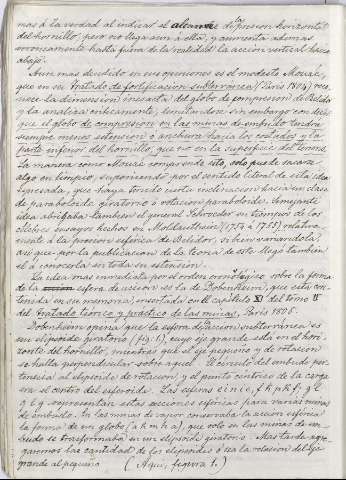 mas á la verdad al indicar el alcance de la presion horizontal
del hornillo, pero no llega aun á ella, y aumenta ademas
erroneamente hasta fuera de la realidad la accion vertical hacia
abajo.
Aun mas decidido en sus opiniones es el modesto Mouzé,
que en su tratado de fortificacion subterranea (Paris 1804) reco-
noce la dimension inexacta del globo de compresion de Belidor
y la analiza criticamente, limitandose sin embargo con decir
que el globo de compresion en las minas de embudo tendrá
siempre menos estension ó anchura hacia los costados y la
parte inferior del hornillo, que no en la superficie del terreno.
La manera como Mouzé comprende esto, solo puede sacarse
algo en limpio, suponiendo por el sentido literal de esta idea
espresada, que haya tenido cierta inclinacion hacia una clase
de paraboloide giratorio ó rotacion paraboloide. Semejante
idea abrigaba tambien el general Schroeder en tiempos de los
célebres ensayos hechos en (1753 á 1755) relativa-
mente á la presion esférica de Belidor, si bien variandola,
asi que por la publicacion de la teoria de este llegó tambien
él á conocerla en toda su estension.
La idea mas inmediata por el orden cronológico sobre la forma
de la esfera de accion es la de Dobenheim, que está con-
tenida en su memoria, insertada en el capítulo XI del tomo II
del tratado teórico y práctico de las minas, Paris 1805.
Dobenheim opina que la esfera de accion subterránea es
un elipsoide giratorio (fig. 1), cuyo eje grande está en el hori-
zonte del hornillo, mientras que el eje pequeño y de rotacion
se halla perpendicular sobre aquel. El circulo del embudo per-
tenecia al elipsoide de rotacion, y el punto céntrico de la carga
era el centro del esferoide. Las esferas c i n i c, f h p k f, g l
q l g representan estas acciones esféricas para varias minas
de embudo. En las minas de vapor conservaba la accion esférica
la forma de un globo (a h m h a), que solo en las minas de em-
budo se trasformaba en un elipsoide giratorio. Mas tarde agre-
garemos la cantidad de los elipsoides ó sea la relacion del eje
grande al pequeño. (Aqui, figura 1.)